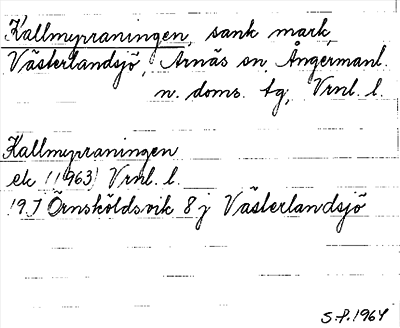 Kallmyraningen, sank mark,
Västerlandsjö, Arnäs sn, Ångermanl.
n. doms. tg, Vrnl. l.
Kallmyraningen
ek (1963) Vrnl. l.
19J Örnsköldsvik 8j Västerlandsjö
S.P. 1964